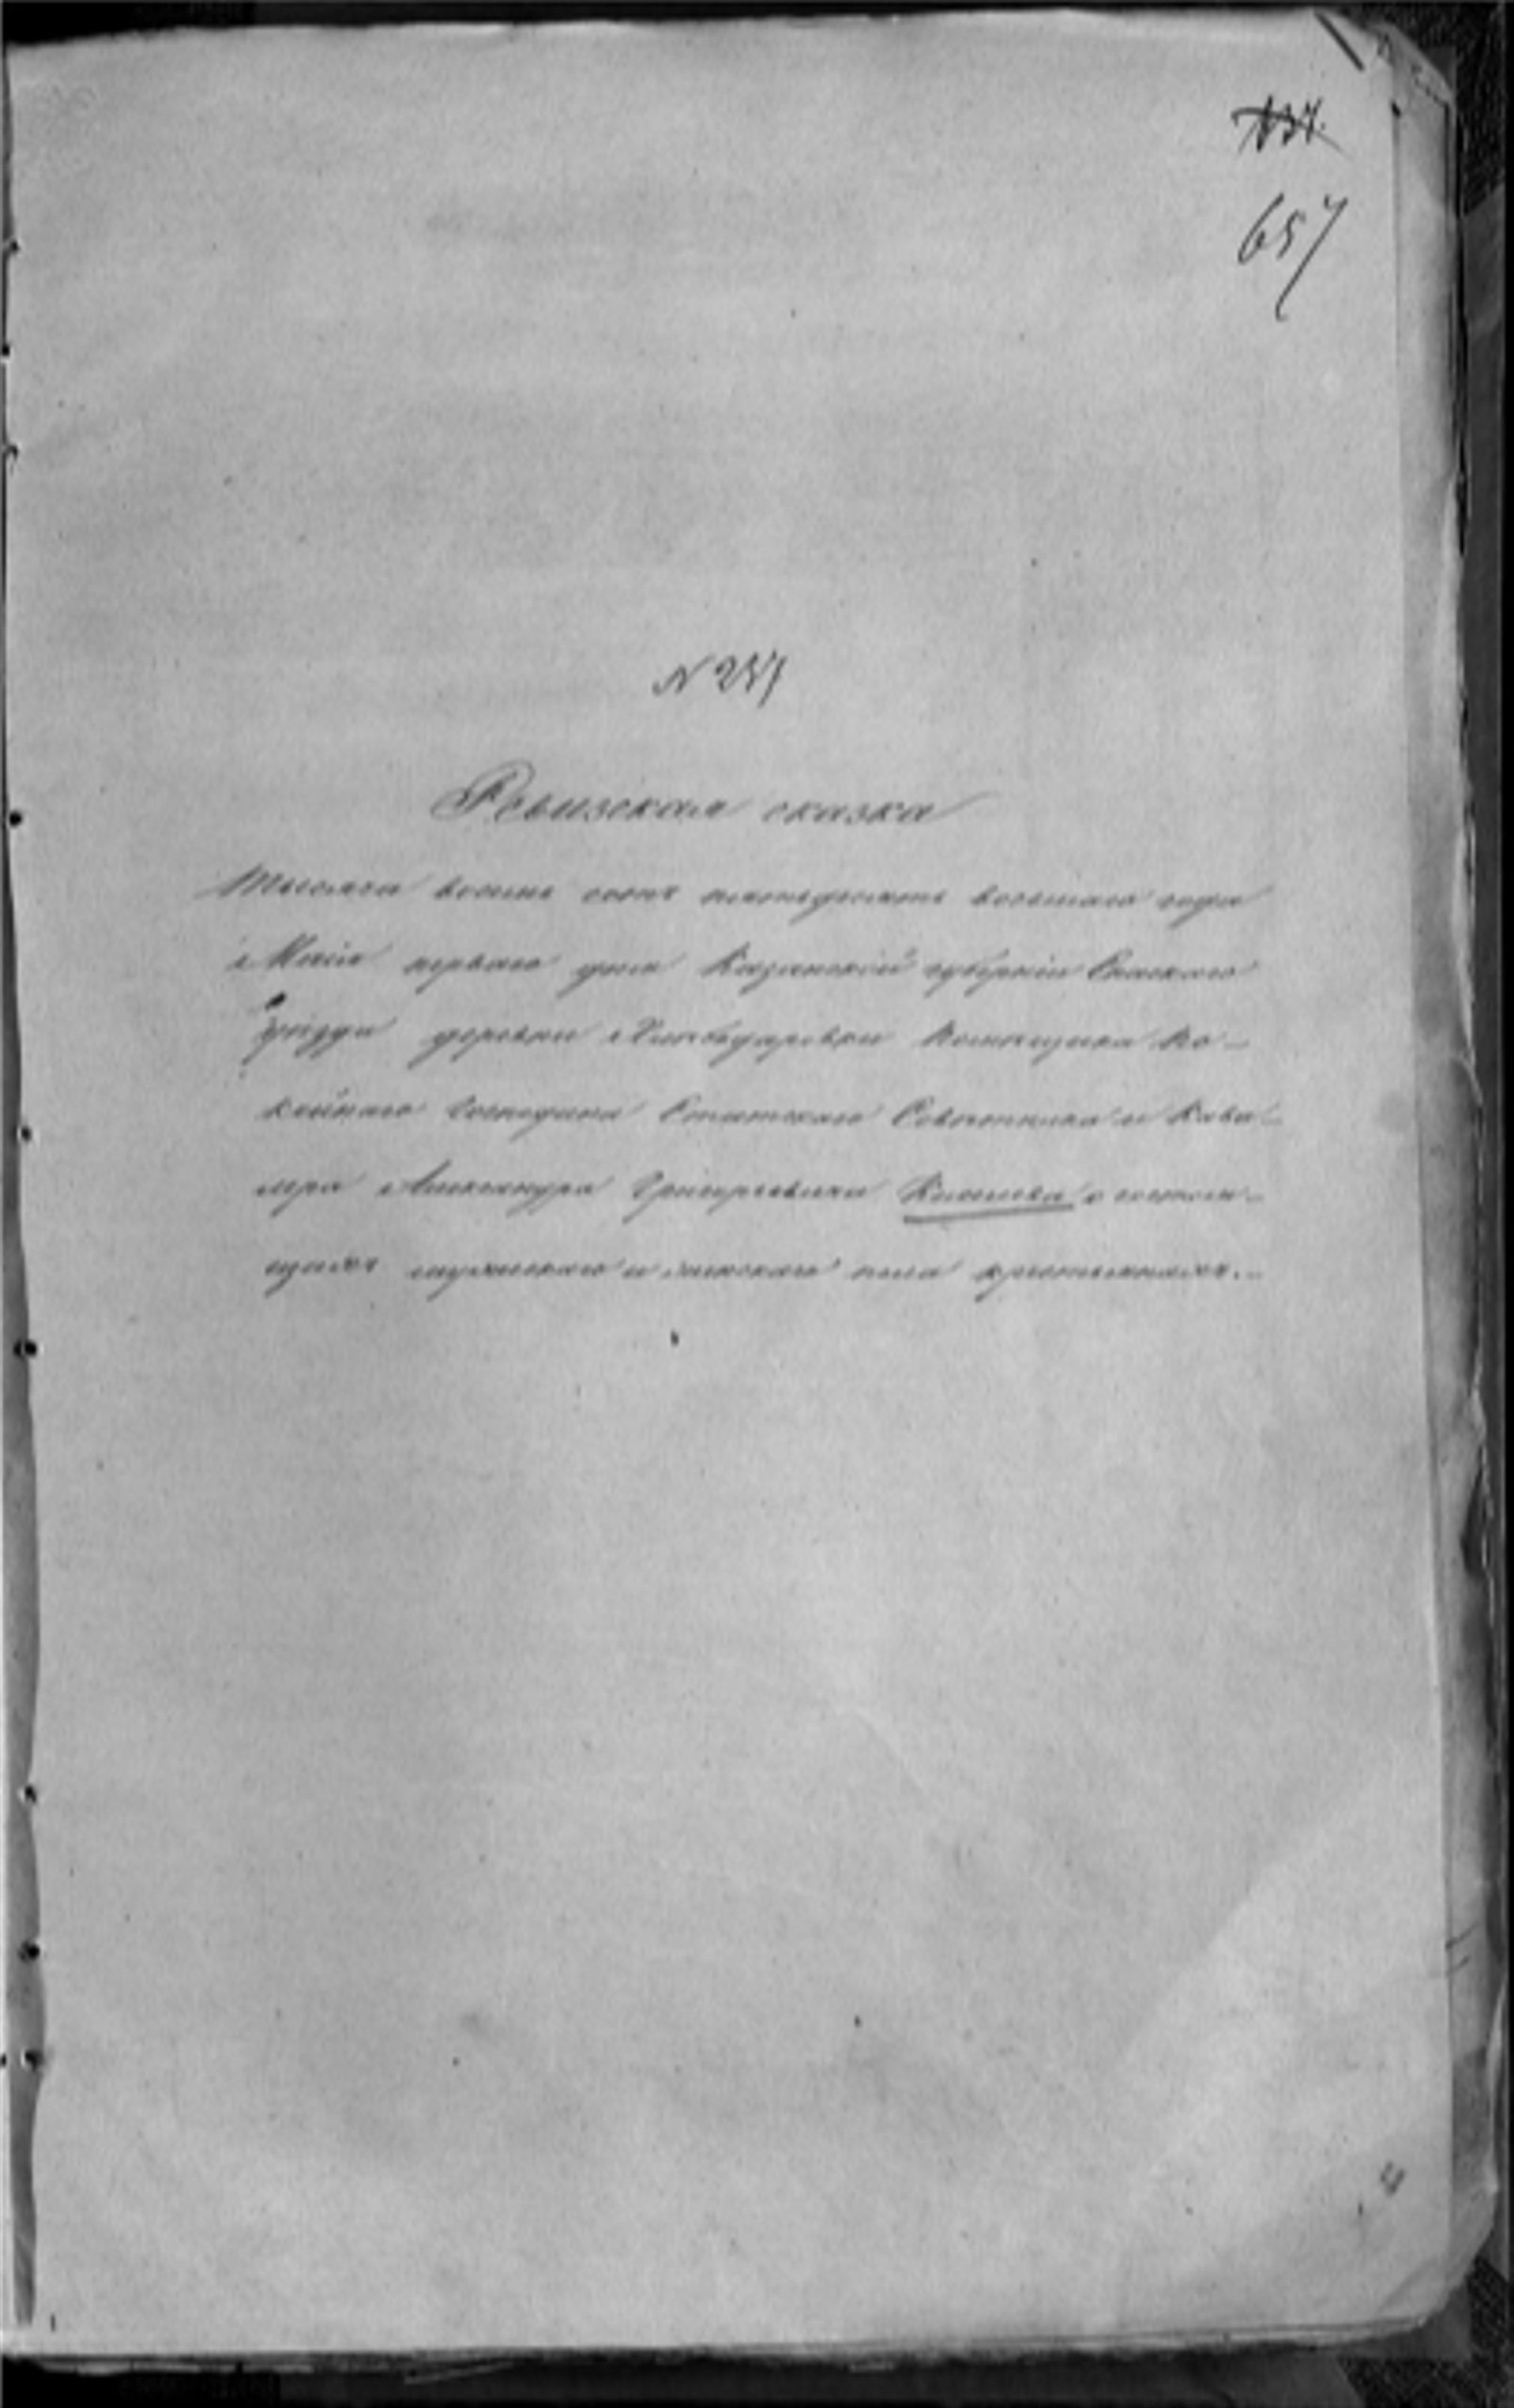 657
Ревизская сказка
Тысяча восемь сотъ пятьдесятъ восьмаго года
Маія перваго дня Казанской губерніи Спаскаго
уѣзда деревни помещика по-
койнаго Господина Статскаго Советника и Кава-
лера Александра Григорьевича о состоя-
щихъ мужескаго и женскаго пола крестьянахъ.-